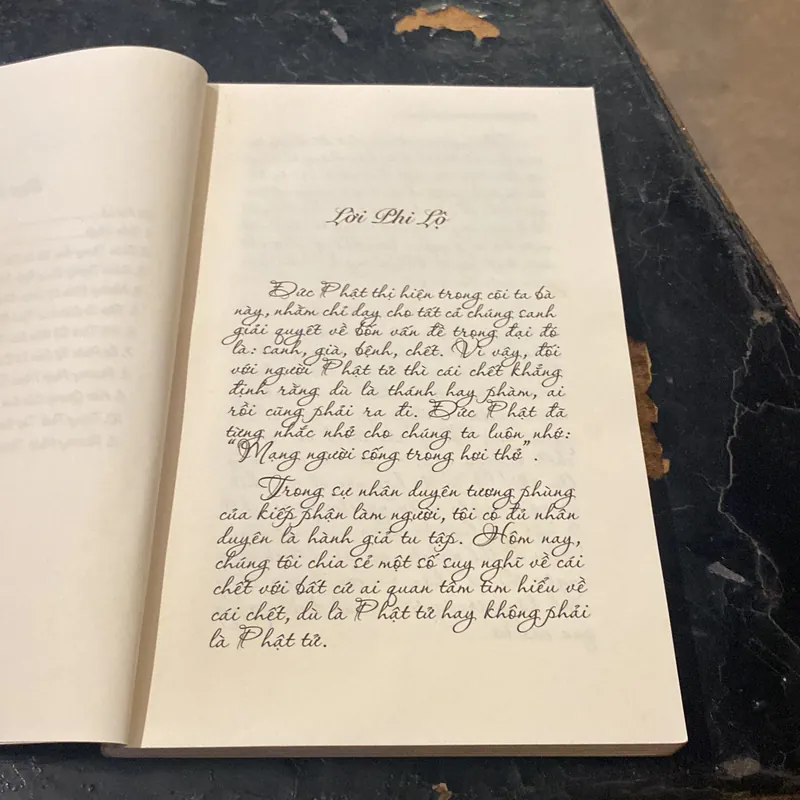 Lời Phi Lộ
Đức Phật thị hiện trong cõi ta bà
này, nhằm chỉ dạy cho tất cả chúng sanh
giải quyết về bốn vấn đề trọng đại đó
là: sanh, già, bệnh, chết. Vì vậy, đối
với người Phật tử thì cái chết khẳng
định rằng dù là thánh hay phàm, ai
rồi cũng phải ra đi. Đức Phật đã
từng nhắc nhở cho chúng ta luôn nhớ:
“Mạng người sống trong hơi thở”.
Trong sự nhân duyên tương phùng
của kiếp phận làm người, tôi có đủ nhân
duyên là hành giả tu tập. Hôm nay,
chúng tôi chia sẻ một số suy nghĩ về cái
chết với bất cứ ai quan tâm tìm hiểu về
cái chết, dù là Phật tử hay không phải
là Phật tử.